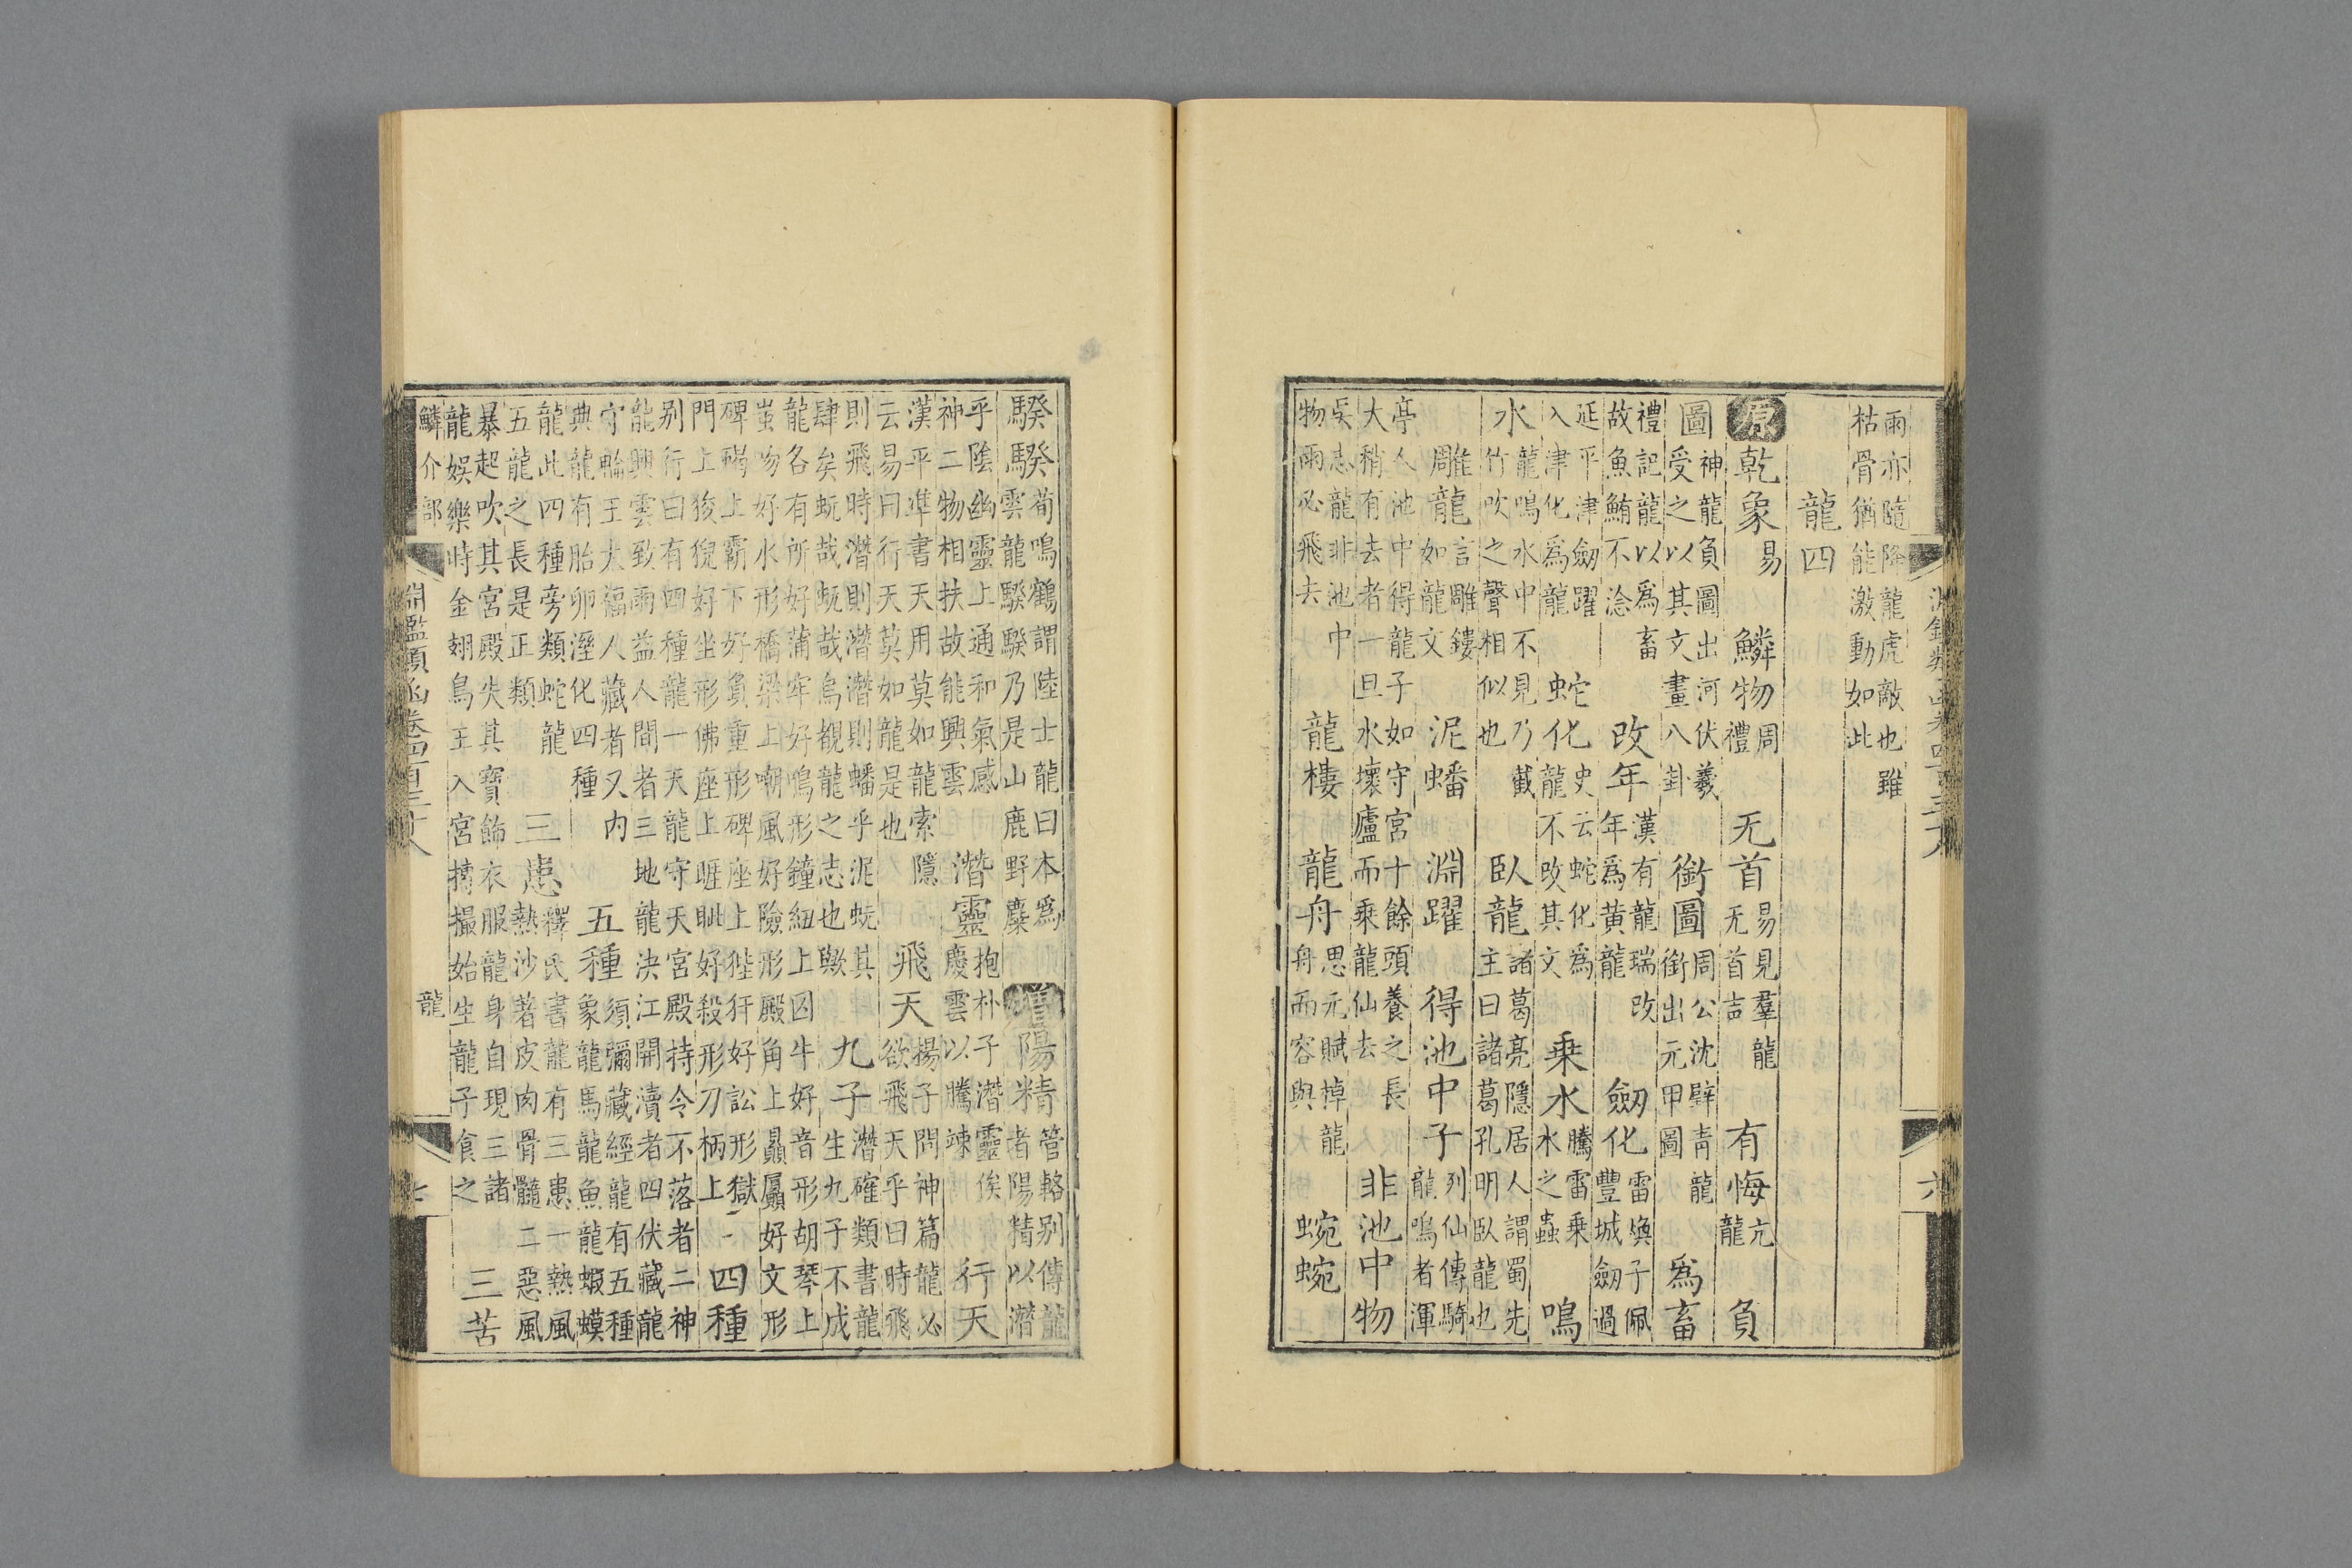 淵鑑類函卷四百三十八 六
雨亦隨降龍虎敵也雖枯骨猶能激動如此
龍四
原乾象易 鱗物周禮 无首易見羣龍无首吉 有悔亢龍 負
圖神龍負圖出河伏羲受之以其文畫八卦 銜圖周公沈璧青龍銜出元甲圖 爲畜
禮記龍以爲畜故魚鮪不淰 改年漢有龍瑞改年爲黃龍 劒化雷煥子佩豐城劒過
延平津劒躍入津化爲龍 蛇化史云蛇化爲龍不改其文 乗水騰雷乗水之蟲 鳴
水龍鳴水中不見乃截竹吹之聲相似也 臥龍諸葛亮隱居人謂蜀先主曰諸葛孔明臥龍也
雕龍言雕鏤如龍文 泥蟠 淵躍 得池中子列仙傳騎龍鳴者渾
亭人池中得龍子如守宮十餘頭養之長大稍有去者一旦水壞廬而乗龍仙去 非池中物
吳志龍非池中物雨必飛去 龍樓 龍舟思元賦棹龍舟而容與 蜿蜿
騤騤荀鳴鶴謂陸士龍曰本爲雲龍騤騤乃是山鹿野麋 增陽精管輅别傳龍者陽精以潛
乎陰幽靈上通和氣感神二物相扶故能興雲 潛靈抱朴子潛靈俟慶雲以騰竦 行天
漢平凖書天用莫如龍索隱云易曰行天莫如龍是也 飛天揚子問神篇龍必欲飛天乎曰時飛
則飛時潛則潛潛則蟠乎泥蚖其肆矣蚖哉蚖哉烏覩龍之志也歟 九子潛確類書龍生九子不成
龍各有所好蒲牢好鳴形鐘紐上囚牛好音形胡琴上蚩吻好水形橋梁上嘲風好險形殿角上贔屭好文形
碑碣上霸下好負重形碑座上狴犴好訟形獄門上狻猊好坐形佛座上睚眦好殺形刀柄上 四種
别行曰有四種龍一天龍守天宮殿持令不落者二神龍興雲致雨益人間者三地龍決江開瀆者四伏藏龍
守輪王大福人藏者又内典龍有胎卵溼化四種 五種須彌藏經龍有五種象龍馬龍魚龍蝦蟆
龍此四種旁類蛇龍五龍之長是正類 三患釋氏書龍有三患一熱風熱沙著皮肉骨髓二惡風
暴起吹其宮殿失其寶飾衣服龍身自現三諸龍娛樂時金翅鳥王入宮搏撮始生龍子食之 三苦
鱗介部 淵鑑類函卷四百三十八 龍 七